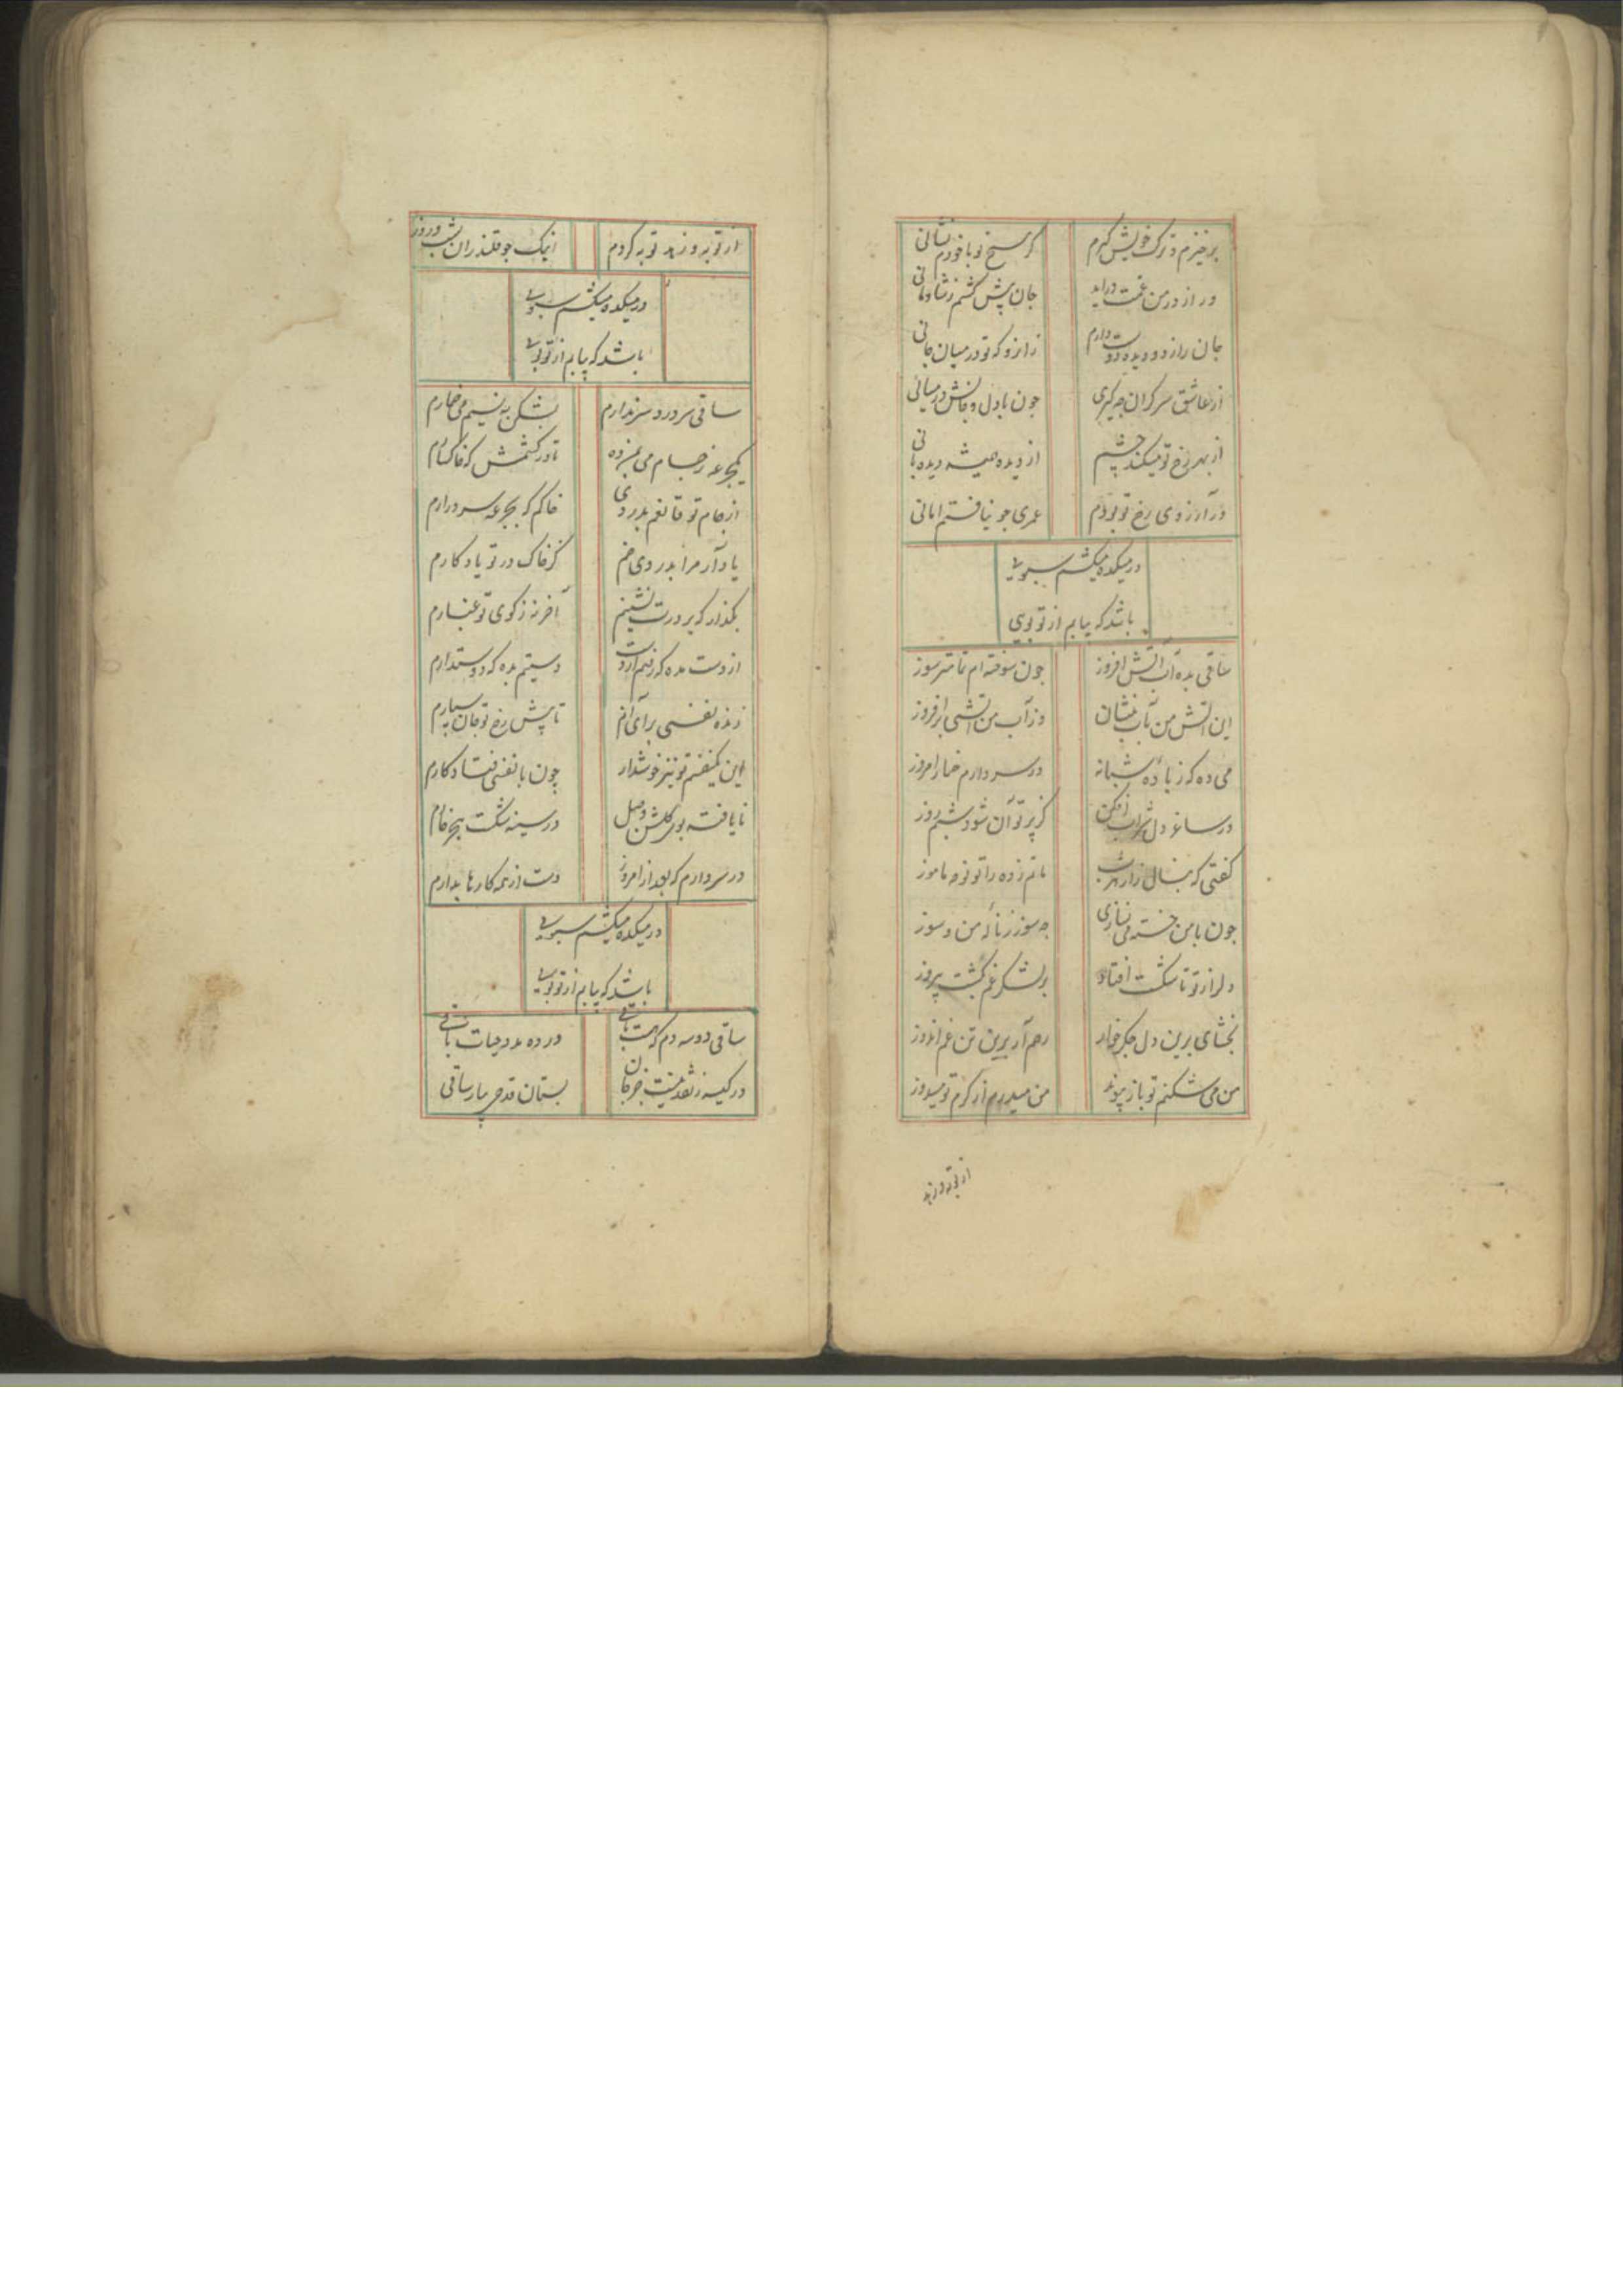 برخیزم و ترک خویش گیرم گر هیچ تو با خودم نشانی
ور از در من غمت درآید جان پیش کشم ز شادمانی
جان را ز دو دیده دوست دارم زانرو که تو در میان جانی
از عاشق سرگران چه گیری چون با دل و جانش در میانی
از بهر رخ تو میکند چشم از دیده همیشه دیده بانی
در آرزوی رخ تو بودم عمری چو نیافتم امانی
در میکده میکشم سبویی
باشد که بیابم از تو بویی
ساقی بده آب آتش افروز چون سوخته ام تمامتر سوز
این آتش من بآب بنشان وز آب من آتشی برافروز
می ده که ز باده شبانه در سر دارم خمار امروز
در ساغر دل شراب افکن کز پرتو آن شود شبم روز
گفتی که بنال زار هر شب ماتم زده را تو نوحه ماموز
چون با من خسته می نسازی چه سوز ز ناله من و سوز
دل را ز تو تا شکست افتاد بر لشکر غم گشت پیروز
بخشای برین دل جگرخوار رحم آر برین تن غم اندوز
من می شکنم تو باز پیوند من میدرم از کرم تو میدوز
از توبه و زهد
از توبه و زهد توبه کردم اینک چو قلندران شب و روز
در میکده میکشم سبویی
باشد که بیابم از تو بویی
ساقی سر درد سر ندارم بشکن به نسیم می خمارم
یکجرعه ز جام می بمن ده تا درکشمش که خاکسارم
از جام تو قانعم بدردی خاکم که بجرعه سر درارم
یاد آر مرا بدردی خم کز خاک در تو یادگارم
بگذار که بر درت نشینم آخر نه ز کوی تو غبارم
از دست مده که رفتم از دست دستیم بده که دوستدارم
زنده نفسی برای آنم تا پیش رخ تو جان سپارم
این یکنفسم تو نیز خوشدار چون با نفسی فتاد کارم
نایافته بوی گلشن وصل در سینه شکست هجر خارم
در سر دارم که بعد از امروز دست از همه کارها بدارم
در میکده میکشم سبویی
باشد که بیابم از تو بویی
ساقی دو سه دم که هست باقی در ده مدد حیات باقی
در کیسه ز نقد نیست جز جان بستان قدحی بیار ساقی